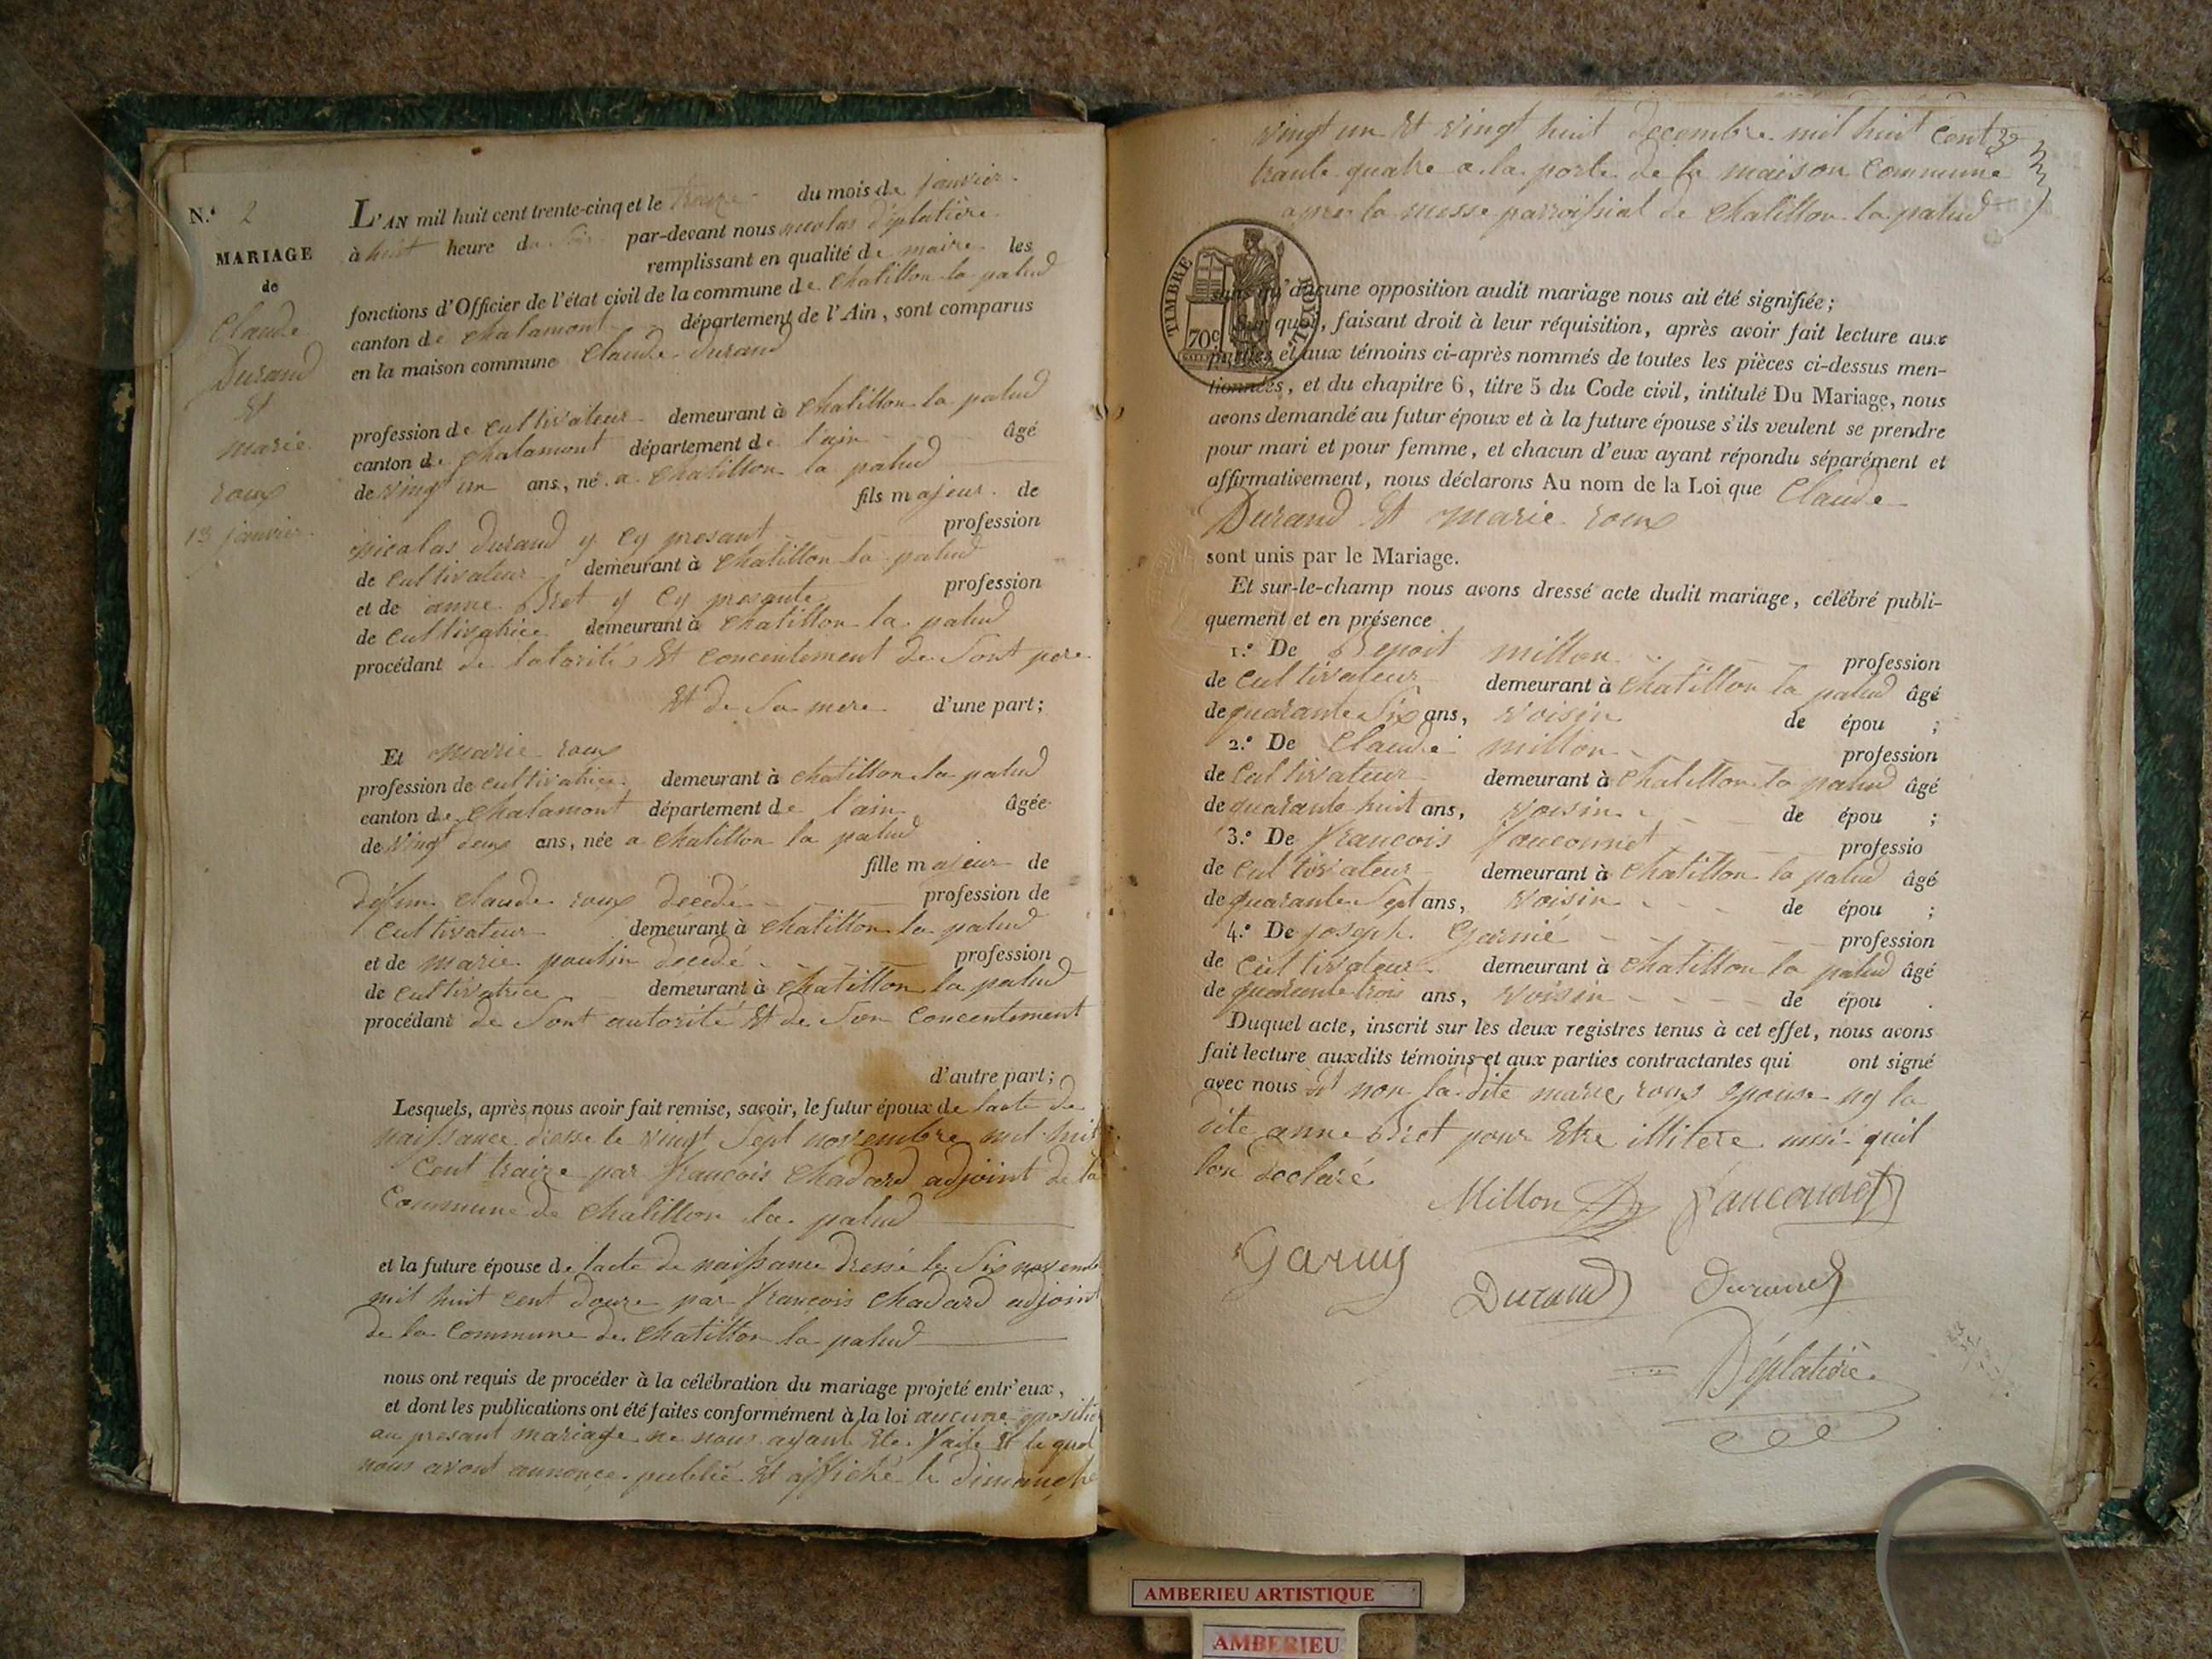 N.º 2
MARIAGE
de
Claude
Durand
et
marie
roux
13 janvier
L'AN mil huit cent trente-cinq et le traize du mois de janvier
à huit heure du soir par-devant nous nicolas déplatière
remplissant en qualité de maire les
fonctions d'Officier de l'état civil de la commune de Chatillon la palud
canton de chalamont département de l'Ain, sont comparus
en la maison commune Claude Durand
profession de cultivateur demeurant à Chatillon la palud
canton de chalamont département de l'ain âgé
de vingt un ans, né a Chatillon la palud
fils majeur de
nicolas Durand y cy presant profession
de cultivateur demeurant à Chatillon la palud
et de anne Bret y cy presante profession
de cultivatrice demeurant à Chatillon la palud
procédant de latorité et concentement de sont pere
et de sa mere d'une part;
Et marie roux
profession de cultivatrice demeurant à chatillon la palud
canton de chalamont département de l'ain âgée
de vingt deux ans, née a Chatillon la palud
fille majeur de
défunt claude roux décédé profession de
cultivateur demeurant à Chatillon la palud
et de marie poulin décédé profession
de cultivatrice demeurant à chatillon la palud
procédant de sont autorité et de son concentement
d'autre part;
Lesquels, après nous avoir fait remise, savoir, le futur époux de lacte de
naissance dressé le vingt sept novembre mil huit
cent traize par françois Chadard adjoint de la
commune de Chatillon la palud
et la future épouse de lacte de naissance dressé le six novemb
mil huit cent douze par françois Chadard adjoint
de la commune de Chatillon la palud
nous ont requis de procéder à la célébration du mariage projeté entr'eux,
et dont les publications ont été faites conformément à la loi aucune opositi
au presant mariage ne nous ayant ete faite et le quel
nous avont annoncé publié et affiché le dimanche
vingt un et vingt huit decembre mil huit cent
trante quatre a la porte de la maison commune
apres la messe parroissial de chatillon la palud
TIMBRE ROYAL
70c
sans qu'aucune opposition audit mariage nous ait été signifiée;
Sur quoi, faisant droit à leur réquisition, après avoir fait lecture aux
parties et aux témoins ci-après nommés de toutes les pièces ci-dessus men-
tionnées, et du chapitre 6, titre 5 du Code civil, intitulé Du Mariage, nous
avons demandé au futur époux et à la future épouse s'ils veulent se prendre
pour mari et pour femme, et chacun d'eux ayant répondu séparément et
affirmativement, nous déclarons Au nom de la Loi que Claude
Durand et marie roux
sont unis par le Mariage.
Et sur-le-champ nous avons dressé acte dudit mariage, célébré publi-
quement et en présence
1.º De Benoit millon profession
de cultivateur demeurant à chatillon la palud âgé
de quarante six ans, voisin de épou ;
2.º De Claude millon profession
de cultivateur demeurant à Chatillon la palud âgé
de quarante huit ans, voisin de épou ;
3.º De françois fauconnet professio
de cultivateur demeurant à Chatillon la palud âgé
de quarante sept ans, voisin de épou ;
4.º De joseph Garnié profession
de cultivateur demeurant à Chatillon la palud âgé
de quarente trois ans, voisin de épou .
Duquel acte, inscrit sur les deux registres tenus à cet effet, nous avons
fait lecture auxdits témoins et aux parties contractantes qui ont signé
avec nous et non la dite marie roux epouse ny la
dite anne Bret pour etre illitere ainsi quil
lon declaré
Millon Fauconnet
Garnij
Durand Durand
Déplatière
AMBERIEU ARTISTIQUE
AMBERIEU